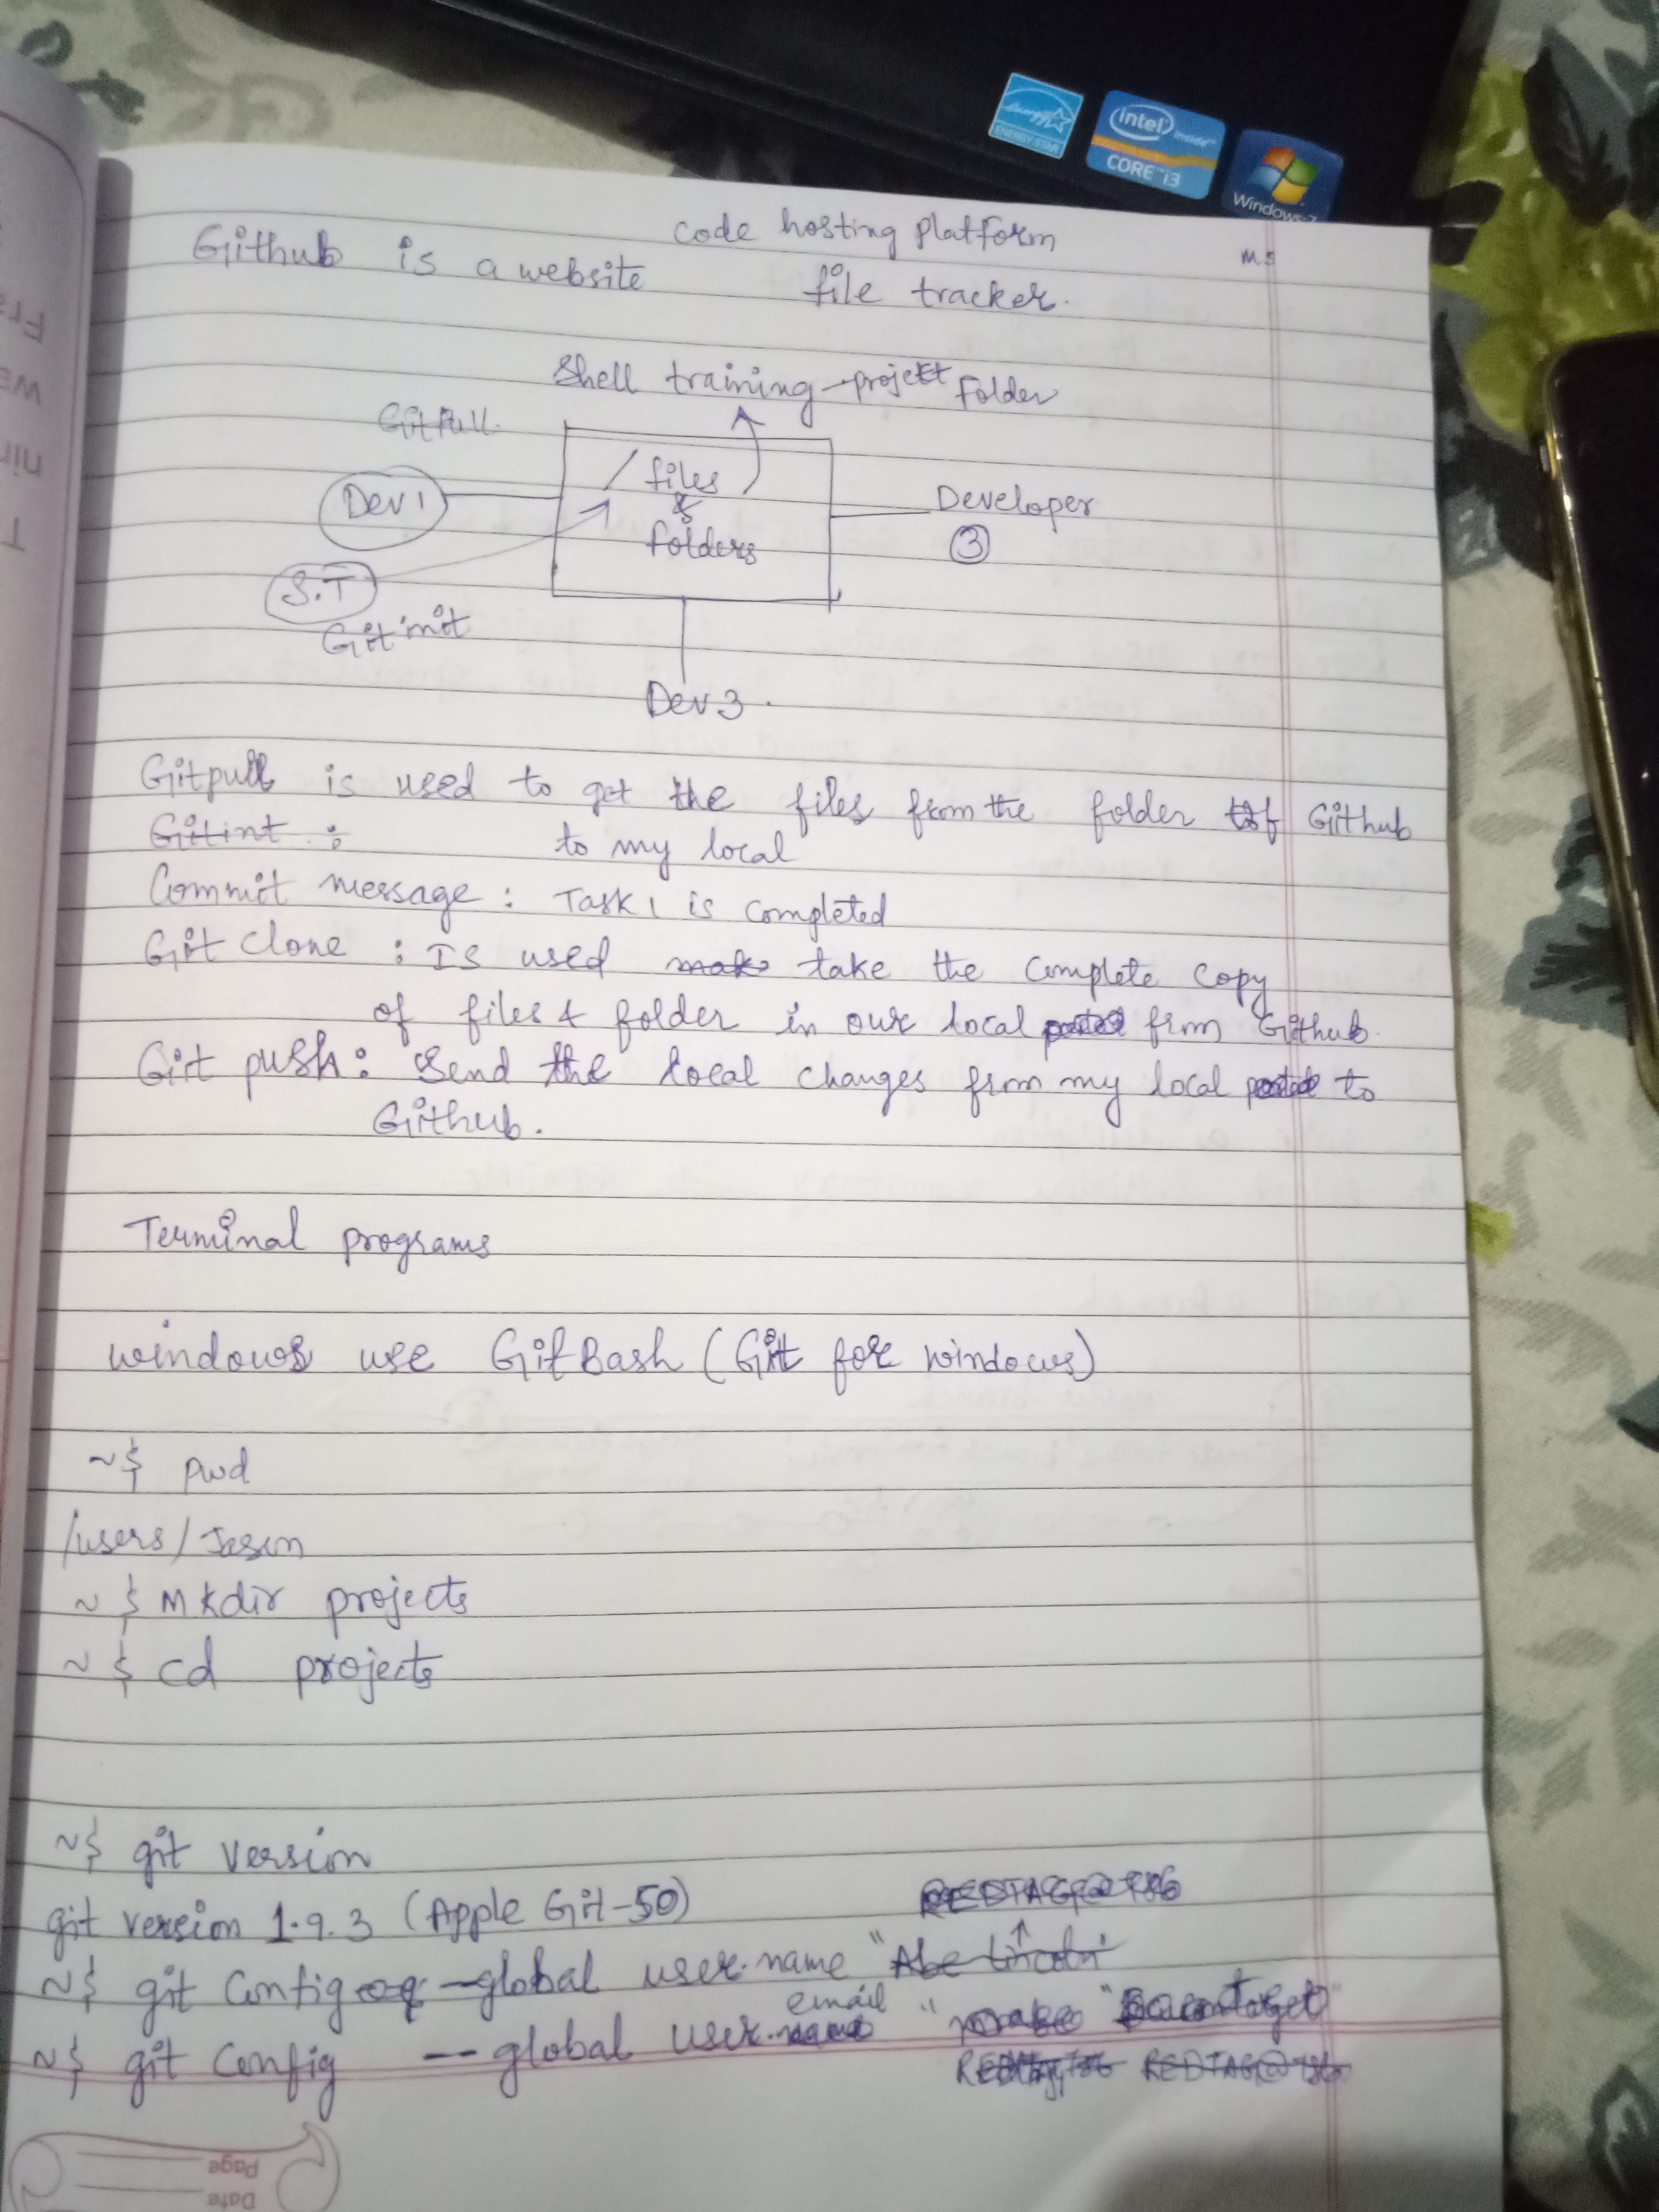 ENERGY STAR
intel inside™
CORE™ i3
Windows 7
code hosting platform
Github is a website file tracker.
M S
Shell training - project Folder
Git Pull.
files
&
folders
Dev 1
Developer
3
S.T
Git init
Dev 3.
Gitpull is used to get the files from the folder of Github
Gitint :
to my local
Commit message : Task 1 is completed
Git Clone : Is used make take the Complete Copy
of files & folder in our local from Github.
Git push : Send the local changes from my local to
Github.
Terminal programs
windows use Git Bash (Git for windows)
~$ pwd
/users/Jason
~$ Mkdir projects
~$ cd projects
~$ git version
git version 1.9.3 (Apple Git-50)
REDTAG@786
~$ git Config --global user.name "Abe Lincoln"
email
~$ git Config -- global user.name "
REDTAG@786
Page
Date